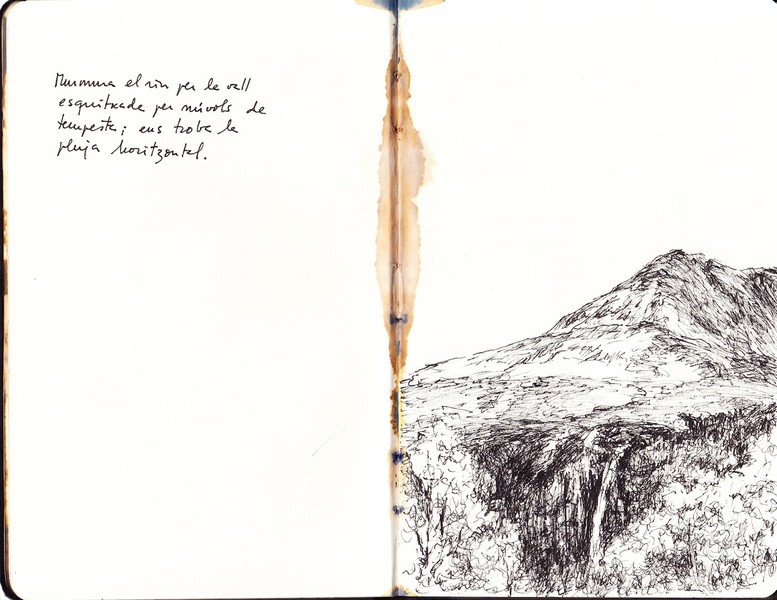 Murmura el riu per la vall
esquitxada per núvols de
tempesta; ens troba la
pluja horitzontal.